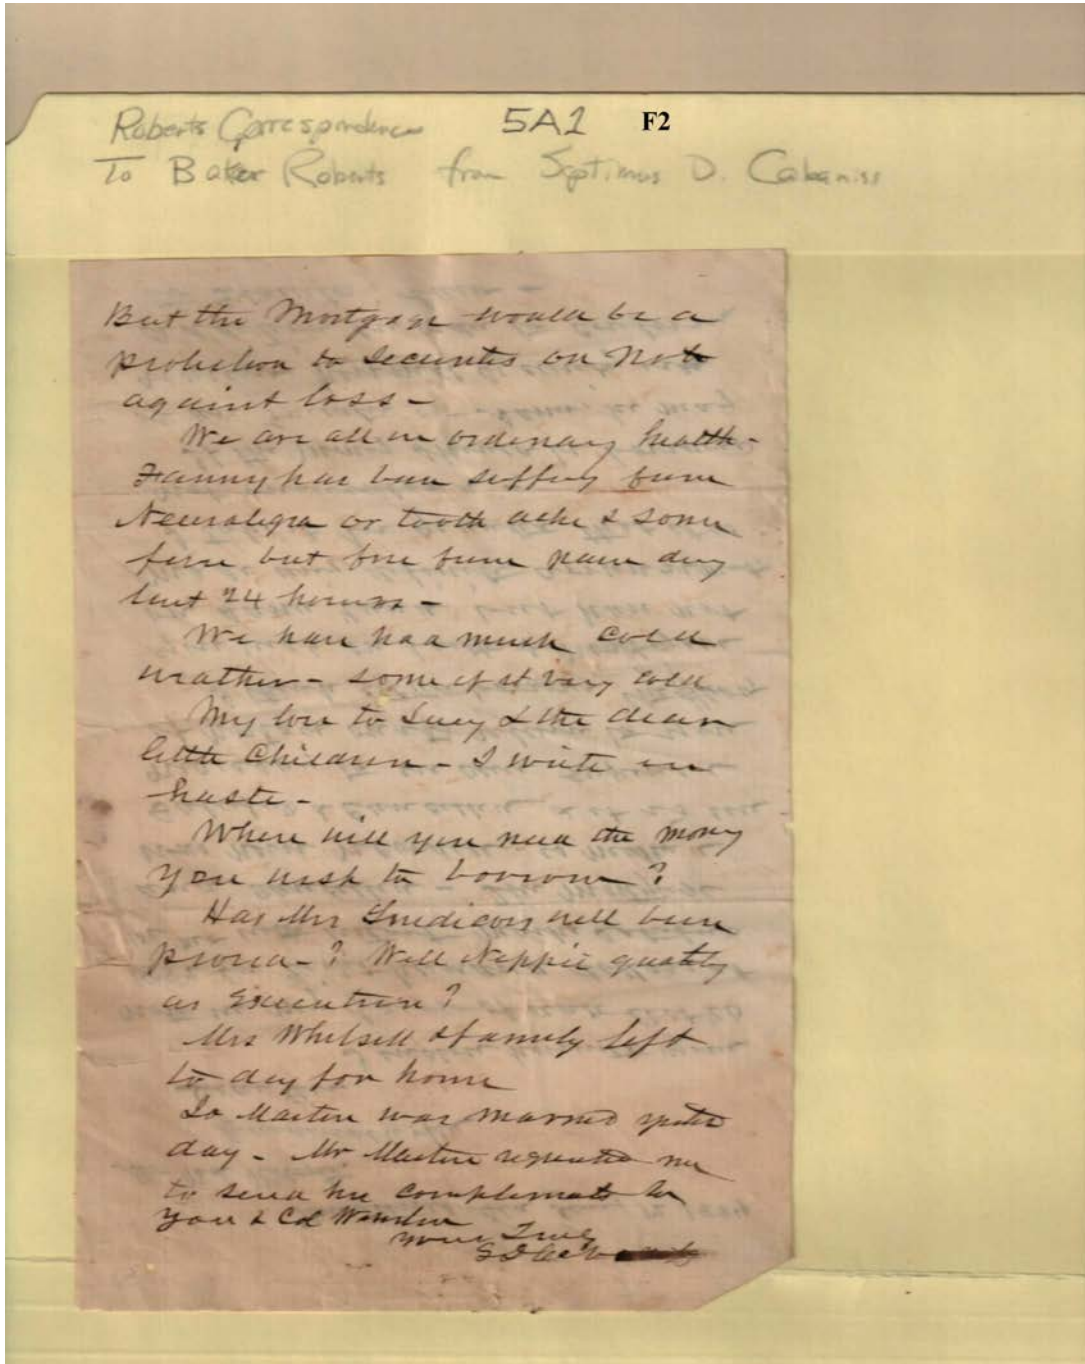 Roberts Correspondence 5A1 F2
To Baker Roberts from Septimus D. Cabaniss
But the Mortgage would be a
protection to Securities on Note
against loss -
We are all in ordinary health -
Fanny has been suffering from
Neuralgia or tooth ache & some
fever but free from pain during
last 24 hours -
We have had much cold
weather - some of it very cold
My love to Lucy & the dear
little Children - I write in
haste -
Where will you need the money
you wish to borrow?
Has Mrs will been
proven - ? Will Neppie qualify
as Executrix?
Mrs Whitsell & family left
to day for home
Martin was married yester
day - Mr Martin requested me
to send his compliments to
you & Col Winston
Yours Truly